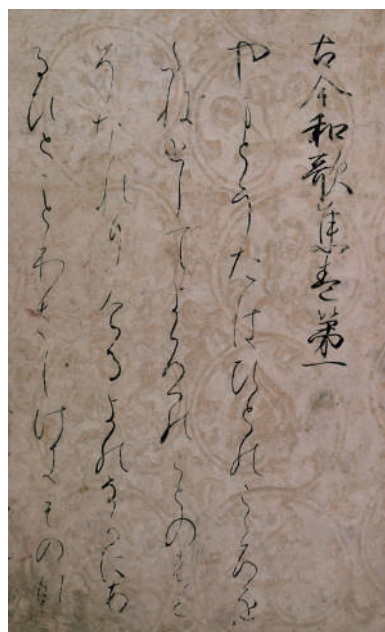 古今和歌集巻第一
やまとうたはひとのこゝろを
たねとしてよろつのことのはと
そなれりける よのなかにあ
るひと ことわさしけきものな